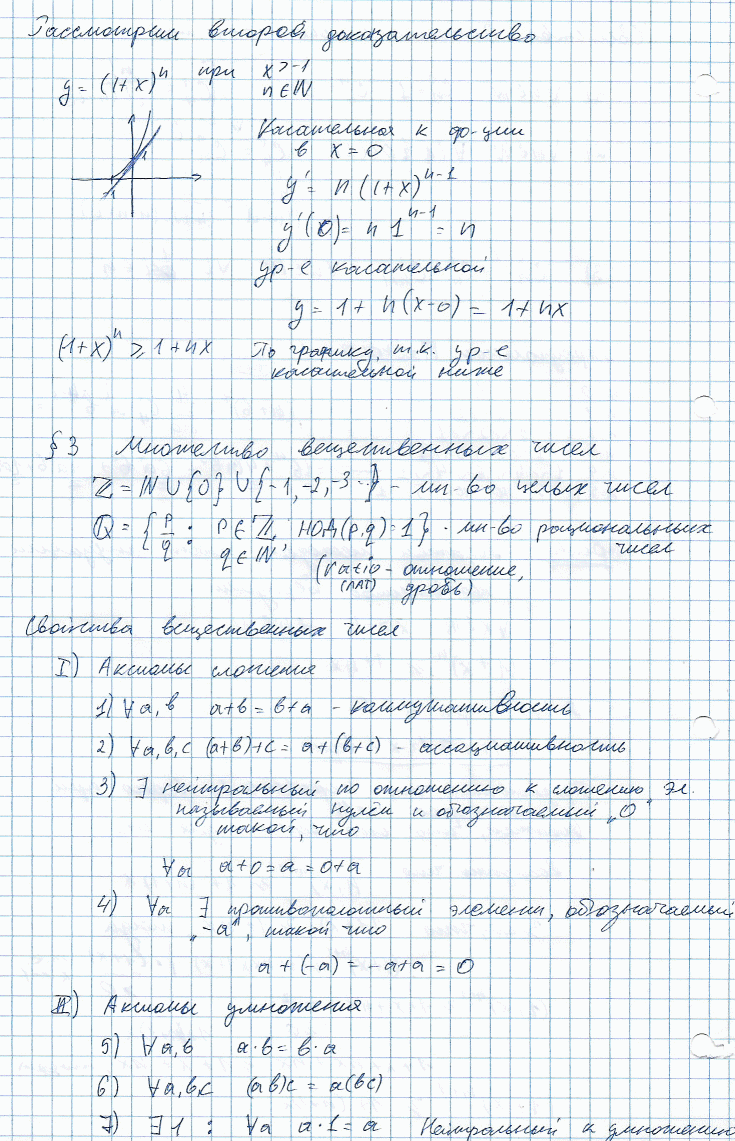 Рассмотрим второй доказательство
y = (1+x)ⁿ при x > -1
n ∈ ℕ
1
-1
Касательная к ф-ции
в x = 0
y' = n(1+x)ⁿ⁻¹
y'(0) = n 1ⁿ⁻¹ = n
ур-е касательной
y = 1 + n(x-0) = 1 + nx
(1+x)ⁿ ≥ 1 + nx По графику, т.к. ур-е
касательной ниже
§3 Множество вещественных чисел
ℤ = ℕ ∪ {0} ∪ {-1, -2, -3...} - мн-во целых чисел
ℚ = {p/q : p ∈ ℤ, НОД(p,q) = 1} - мн-во рациональных
q ∈ ℕ чисел
(ratio - отношение,
(ЛАТ) дробь)
Свойства вещественных чисел
I) Аксиомы сложения
1) ∀a,b a+b = b+a - коммутативность
2) ∀a,b,c (a+b)+c = a+(b+c) - ассоциативность
3) ∃ нейтральный по отношению к сложению эл.
называемый нулём и обозначаемый „0“
такой, что
∀a a+0 = a = 0+a
4) ∀a ∃ противоположный элемент, обозначаемый
„-a“, такой что
a + (-a) = -a + a = 0
II) Аксиомы умножения
5) ∀a,b a·b = b·a
6) ∀a,b,c (ab)c = a(bc)
7) ∃1 : ∀a a·1 = a Нейтральный к умножению